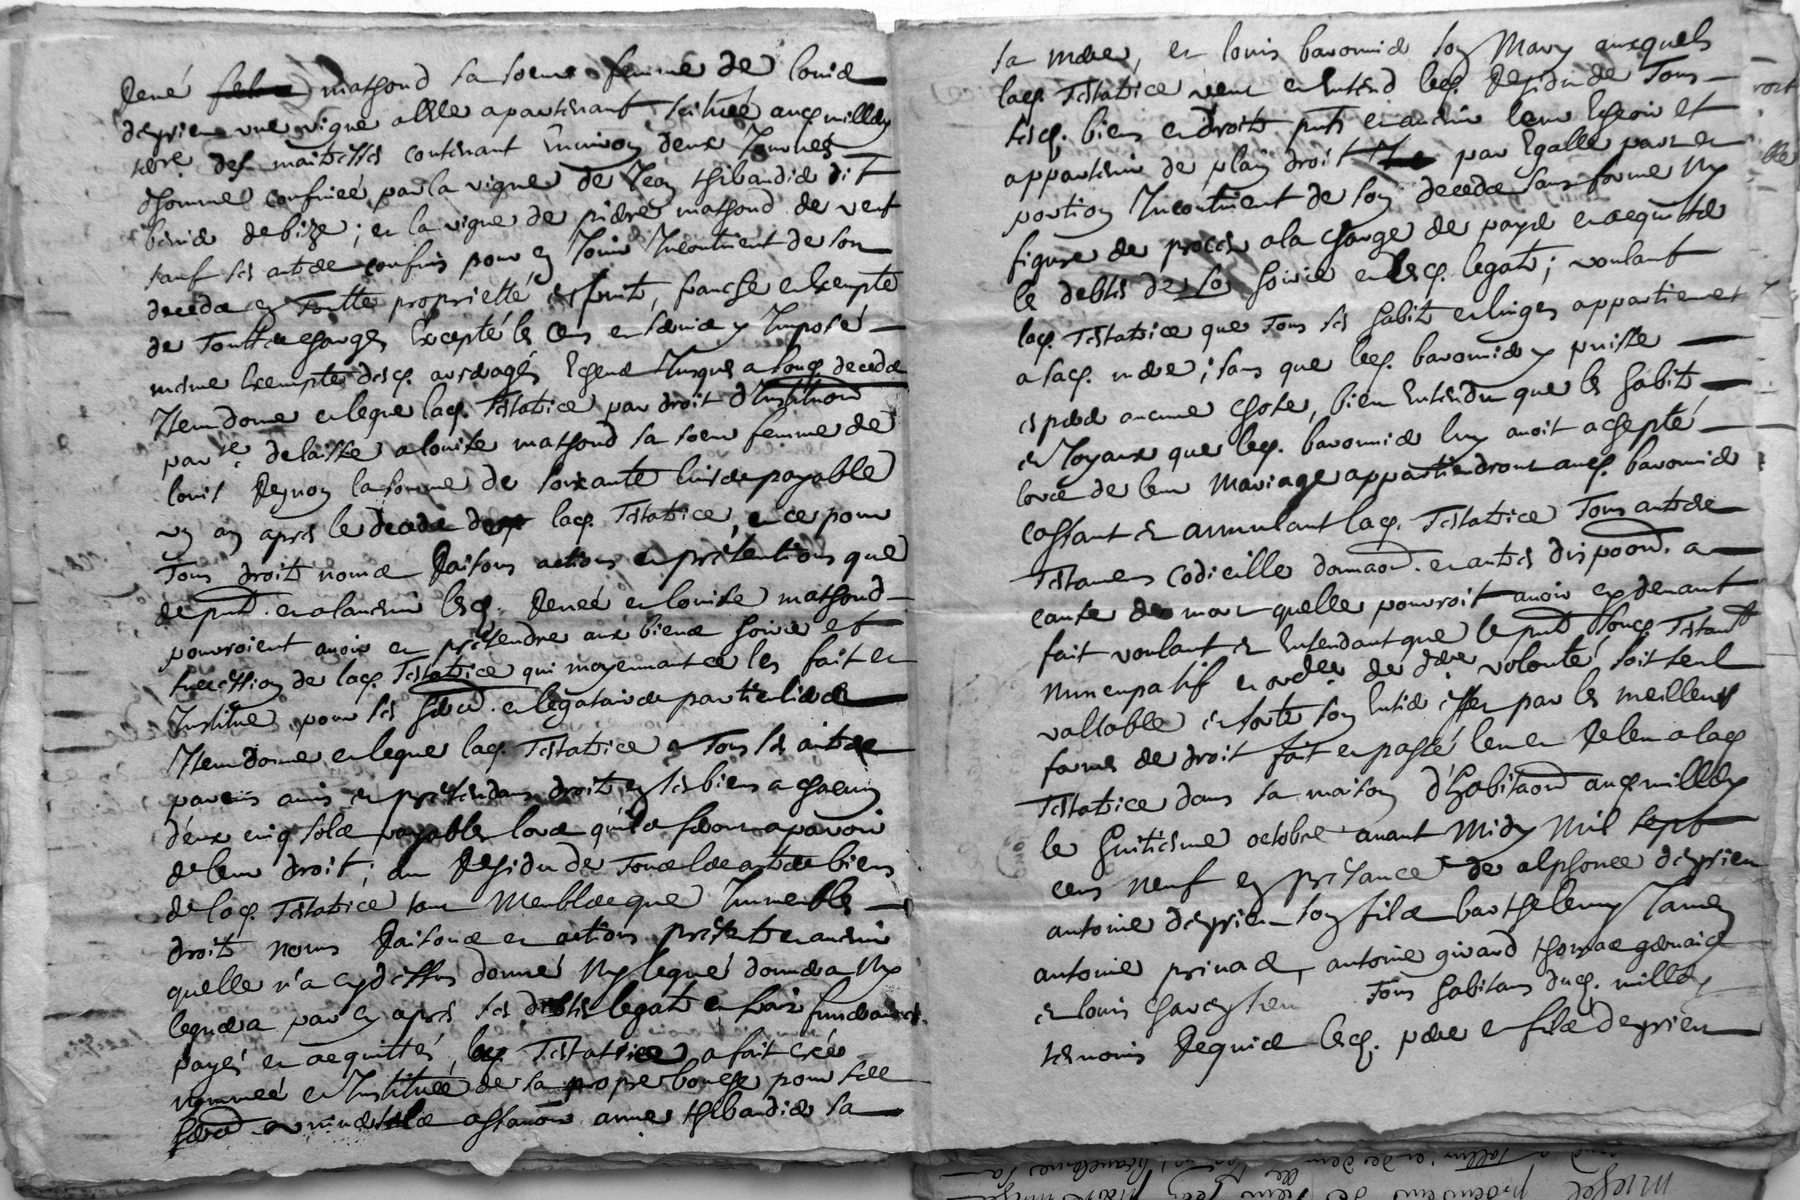 René mathond sa soeur femme de Louis
deyrieu une vigne a elle apartenant scituée auq. milley
terre des maitesses contenant environ deux journes
dhommes confinée par la vigne de Jean thibaudier dit
de bize ; et la vigne de pierre mathond de vent
sauf ses autres confins pour en jouir Incontinent de son
decedz en Toutte proprietté , franche et Exempte
de Touttes charges Excepté les cens et servis y Imposés
mesme Exempte desq. arrerages Echeus Jusques a sonq. decedz
Item donne et legue laq. Testatrice par droit d'Instituon
par ere delaisse a louise mathond sa soeur femme de
louis Reynon la somme de soixante livres payable
un an apres le decedz de laq. Testatrice, et ce pour
Tous droits noms Raisons actions et prétentions que
de pnt. et a ladvenir lesq. Renée et louise mathond
pourroient avoir et prétendre aux biens hoirie et
succession de laq. Testatrice qui moyennant ce les fait et
Institue pour ses hered. et legataires particulieres
Item donne et legue laq. Testatrice a Tous ses autres
parens amis et prétendans droits en ses biens a chacun
d'eux cinq sols payables lors qu'ils feront aparoir
de leur droit ; au Residu de Tous les autres biens
de laq. Testatrice tant Meubles que Immeubles
droits noms Raisons et actions présents et advenir
quelle n'a cy dessus donné Ny legué donnera Ny
leguera par cy apres ses debtes legats et frais funeraires
payés et acquittés laq. Testatrice a fait créé
nommée et Instituée de sa propre bouche pour ses
hered. universels assavoir anne thibaudier sa
sa mere, et louis baronnier son Mary auxquels
laq. Testatrice veut et Entend leq. Residu de Tous
sesq. biens et droits pnts et advenir leur Escheoir et
appartenir de plain droit par Egalle part et
portion Incontinent de son decedz sans forme Ny
figure de procès a la charge de payer et acquitter
le debtes de sa hoirie et lesq. legats ; voulant
laq. Testatrice que Tous ses habits et linges appartienent
a saq. mere ; sans que leq. baronnier y puisse
esperer aucune chose, bien Entendu que les habits
et Joyaux que leq. baronnier luy avoit achepté
lors de leur Mariage appartiendront auq. baronnier
cassant et annulant laq. Testatrice Tous autres
Testamens codicille donaon. et autres dispoon. a
cause de mort quelle pourroit avoir cy devant
fait voulant et Entendant que le pnt sonq. Testant
Nuncupatif et ordre. de dere. volonté soit seul
vallable et sorte son Entier effet par les meilleurs
formes de droit fait et passé leu et Releu a laq.
Testatrice dans sa maison d'habitaon auq. milley
le huitiesme octobre avant Midy Mil sept
cens neuf en présance de alphonce deyrieu
antoine deyrieu son fils barthelemy Jamen
antoine prinac, antoine girard thomas gervais
et louis Tous habitans duq. milley
tesmoins Requis lesq. pere et fils deyrieu